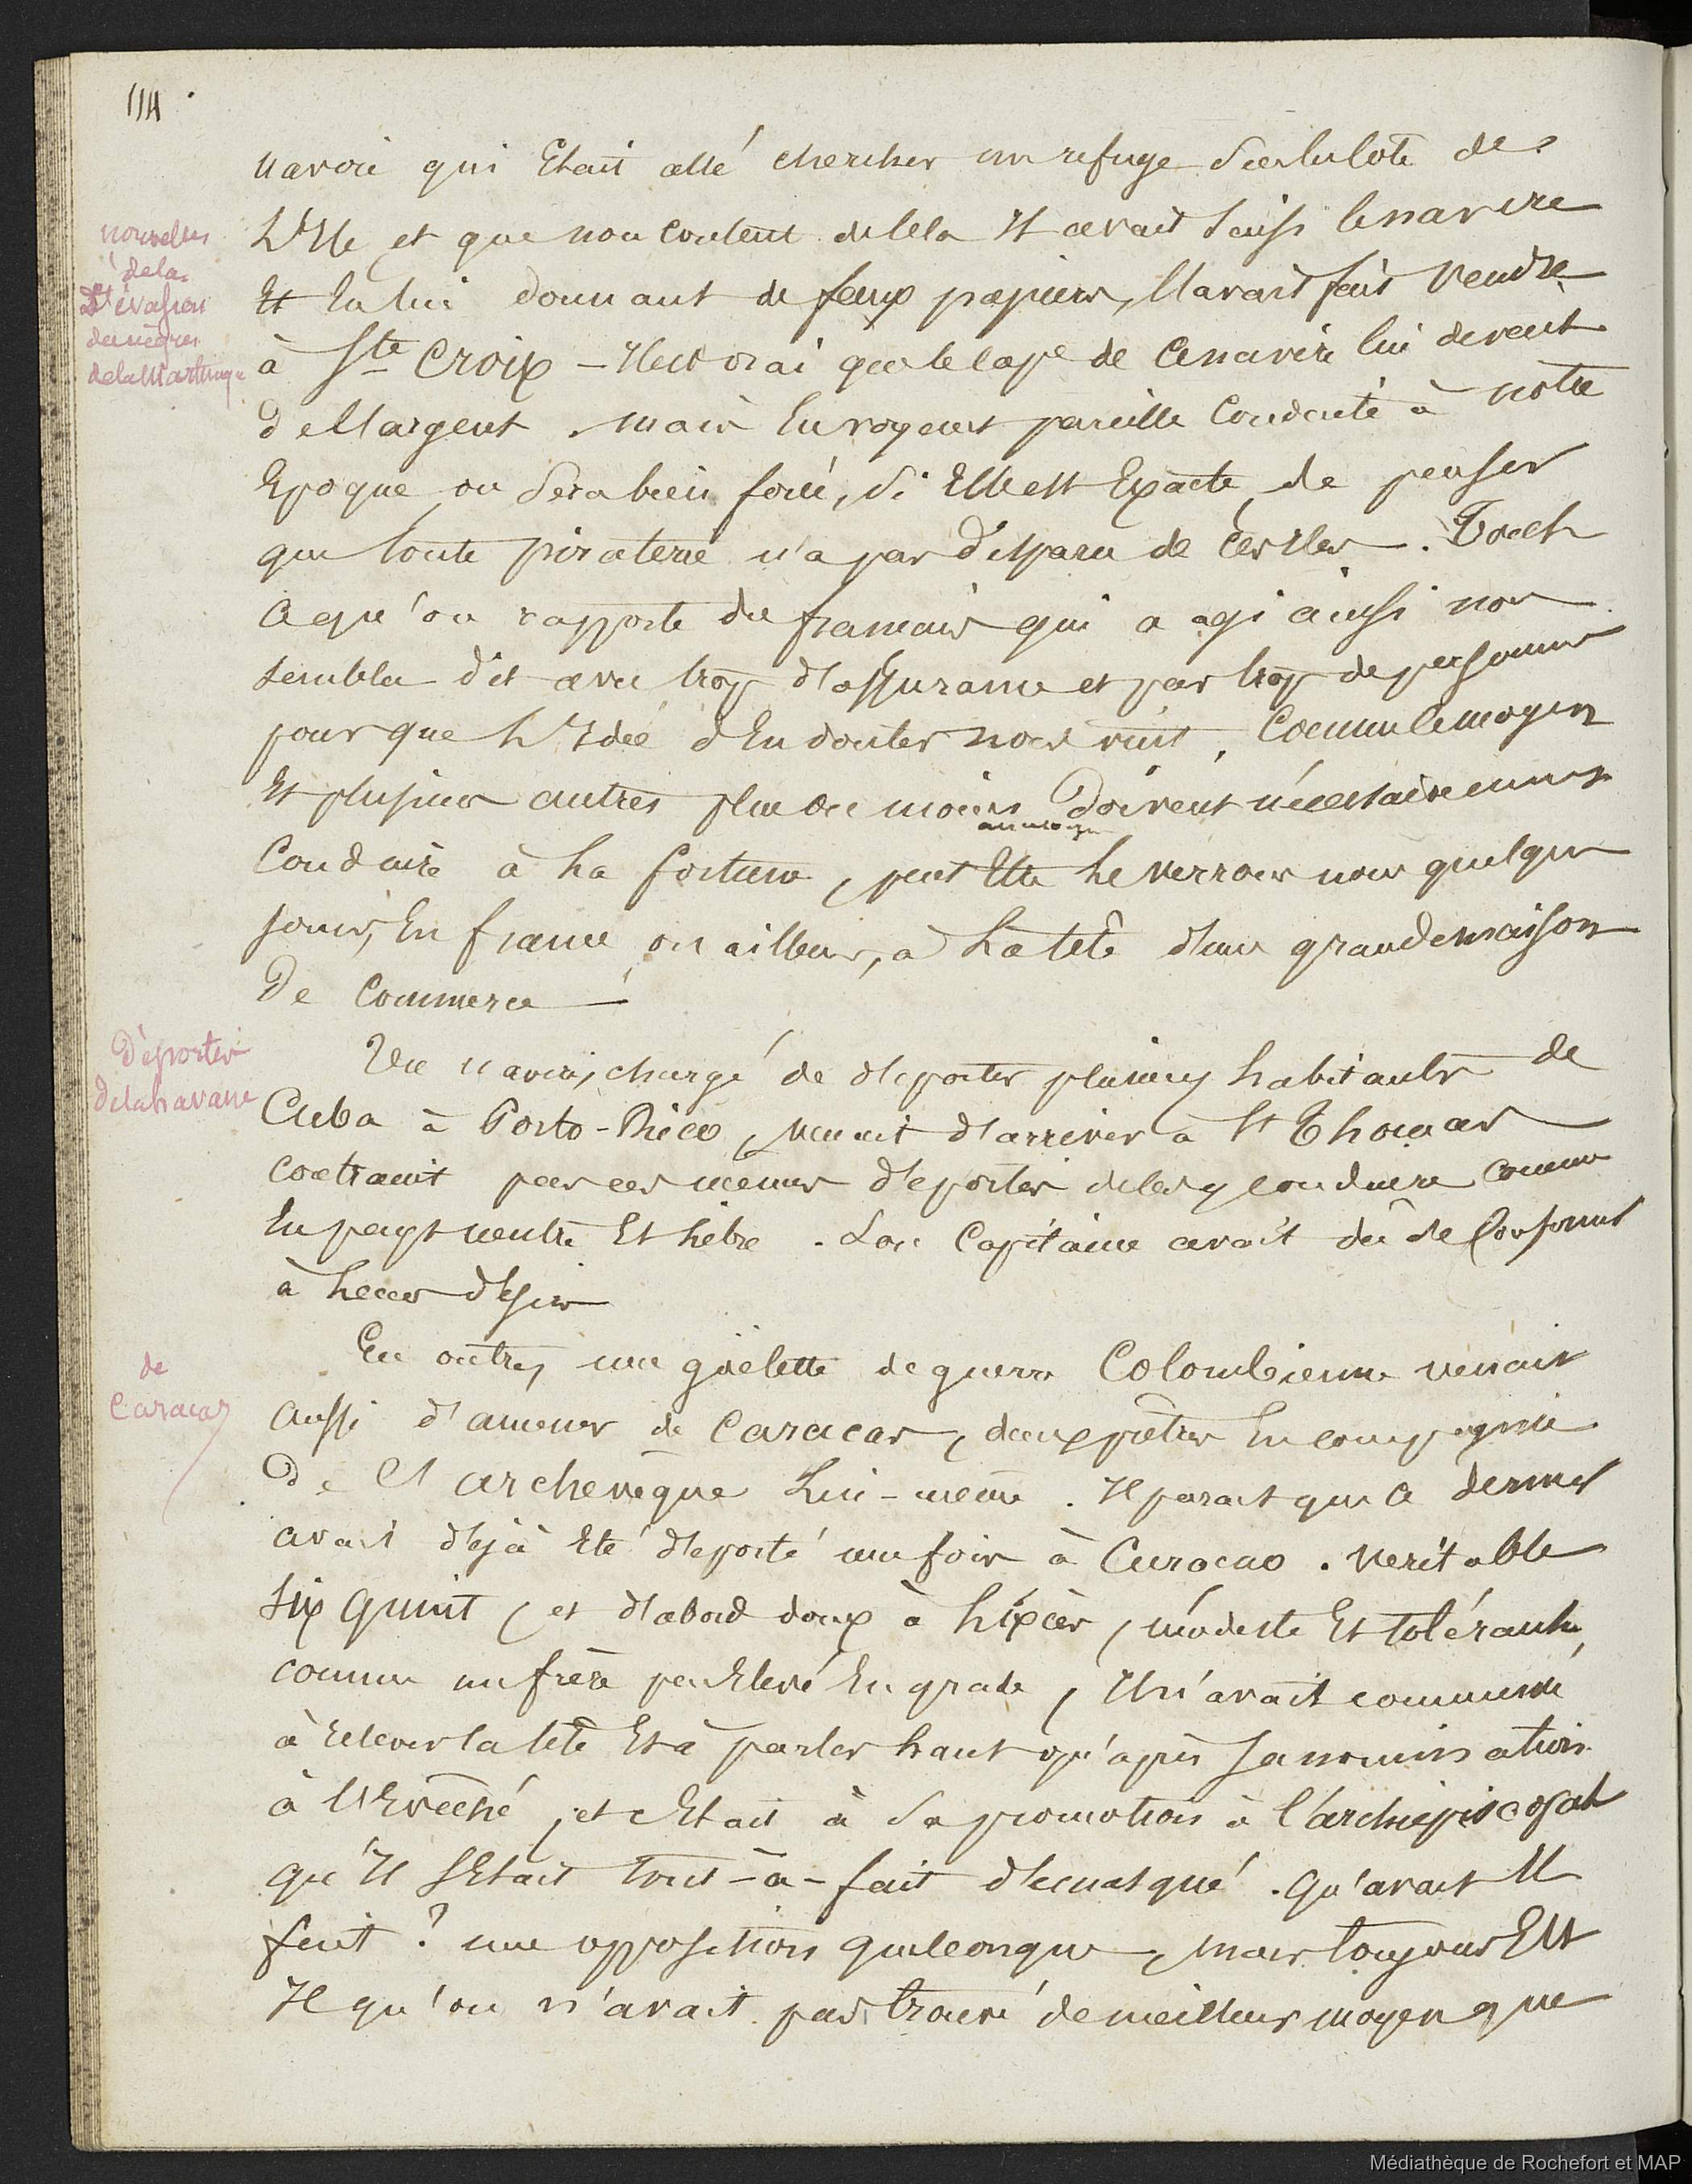 114
navire qui Etait allé chercher un refuge sur la côte de
L'Ile, et que non content de cela Il avait saisi le navire
Et En lui donnant de faux papiers, l'avait fait Vendre
à Ste Croix – Il est vrai que le cape de ce navire lui devait
de l'argent. Mais En voyant pareille Conduite à notre
Epoque on sera bien forcé, si Elle est Exacte, de penser
que toute piraterie n'a pas disparu de ces Iles. Tout
ce qu'on rapporte du français qui a agi ainsi nous
sembla dit avec trop d'assurance et par trop de personnes
pour que L'Idée d'En douter nous vint. Comme le moyen
Et plusieurs autres plus ou moins analogues doivent nécessairement
Conduire à la fortune, peut Etre le verrons nous quelques
jours, En france, ou ailleurs, à La tête d'une grande maison
De Commerce –
Un navire, chargé de déporter plusieurs habitants de
Cuba à Porto-Rico, venait d'arriver à St Thomas
contraint par ces mêmes déportés de les y conduire comme
En pays neutre Et Libre. Son Capitaine avait dû se Conformer
à Leurs désirs
En outre, une goëlette de guerre Colombienne venait
Aussi d'amener de Caracas, deux prêtres En compagnie
De L'archevêque Lui-même. Il parait que ce dernier
avait déjà Eté déporté une fois à Curacao. Veritable
Six Quint, et d'abord doux à L'excès, modeste Et tolérant,
comme un frère peu Elevé En grade, Il n'avait commencé
à relever la tête Et à parler haut qu'après sa nomination
à L'Evêché, et c'Etait à sa promotion à l'archiépiscopat
qu'Il s'Etait tout-à-fait démasqué. Qu'avait Il
fait ? une opposition quelconque, mais toujours Est
Il qu'on n'avait pas trouvé de meilleur moyen que
nouvelles
de la
L'évasion
des nègres
de la Martinique
Déportés
de la havane
de
Caracas
Médiathèque de Rochefort et MAP